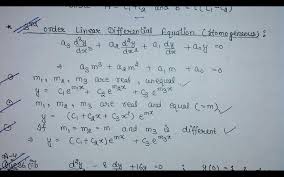 order Linear Differential Equation (Homogeneous) :
a₃ d³y/dx³ + a₂ d²y/dx² + a₁ dy/dx + a₀y = 0
⇒ a₃m³ + a₂m² + a₁m + a₀ = 0
m₁, m₂, m₃ are real, unequal
y = C₁e^{m₁x} + C₂e^{m₂x} + C₃e^{m₃x}
m₁, m₂, m₃ are real and equal (=m)
⇒ y = (C₁ + C₂x + C₃x²) e^{mx}
If m₁ = m₂ = m and m₃ is different
⇒ y = (C₁ + C₂x) e^{mx} + C₃e^{m₃x}
d²y - 8 dy + 16y = 0